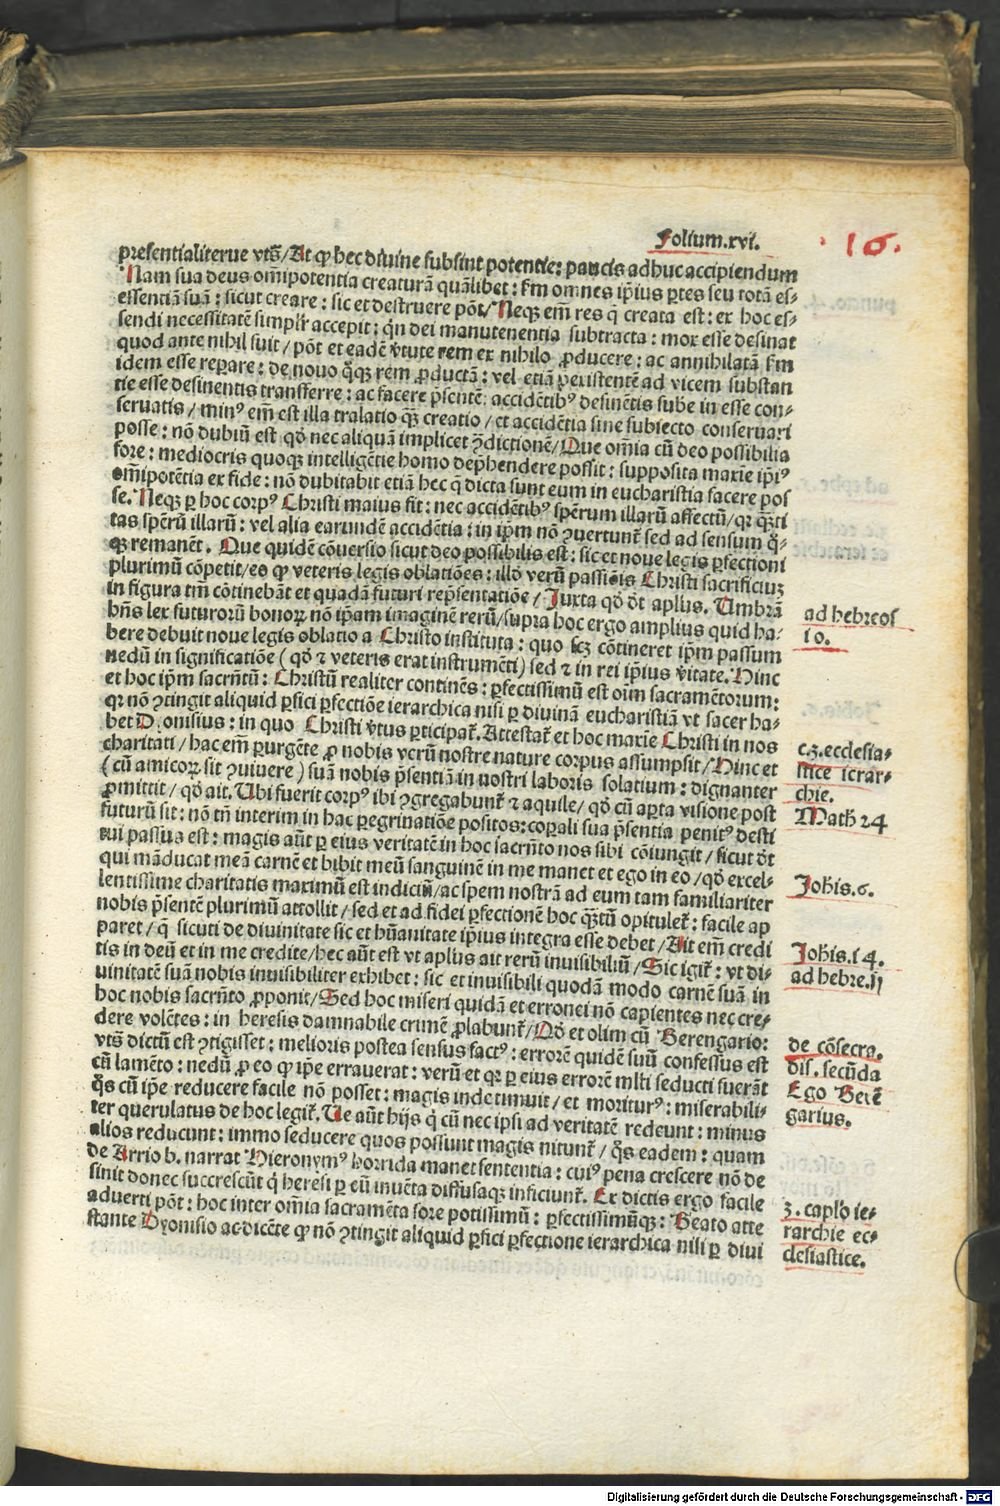 Folium.xvi.
16.
presentialiterue vtꝭ/At ꝙ hec diuine subsint potentie: paucis adhuc accipiendum
Nam sua deus om̄ipotentia creaturā quālibet: ẜm omnes ip̄ius ꝑtes seu totā es-
essentiā suā: sicut creare: sic et destruere pōt/Neqꝫ em̄ res q̄ creata est: ex hoc es-
sendi necessitatē simplr̄ accepit: qn̄ dei manutenentia subtracta: mox esse desinat
quod ante nihil fuit/pōt et eadē v̄tute rem ex nihilo ꝓducere: ac annihilatā ẜm
idem esse reꝑare: de nouo q̊qꝫ rem ꝓductā: vel etiā ꝑexistentē ad vicem substan
tie esse desinentis transferre: ac facere p̄sentē: accidētibꝰ desinētis sube in esse con-
seruatis/minꝰ em̄ est illa tralatio qꝫ̄ creatio/et accidētia sine subiecto conseruari
posse: nō dubiū est qd̓ nec aliquā implicet ꝯ̄dictionē/Que om̄ia cū deo possibilia
fore: mediocris quoqꝫ intelligētie homo dep̄hendere possit: supposita maxīe ip̄iꝰ
om̄ipotētia ex fide: nō dubitabit etiā hec q̄ dicta sunt eum in eucharistia facere pos
se. Neqꝫ ꝑ hoc corpꝰ Christi maius fit: nec accidētibꝰ spērum illarū affectū/qꝛ qꝫ̄ti
tas spērū illarū: vel alia earundē accidētia: in ip̄m nō ꝯuertunt̄ sed ad sensum q̊-
qꝫ remanēt. Que quidē cōuersio sicut deo possibilis est: sic et noue legis ꝑfectioni
plurimū cōpetit/eo ꝙ veteris legis oblatiōes: illō verū passiōis Christi sacrificiuꝫ
in figura tm̄ cōtinebāt et quadā futuri rep̄sentatiōe/Juxta qd̓ dt̄ apl̄us. Umbrā
hn̄s lex futurorū bonoꝝ nō ip̄am imaginē rerū/supra hoc ergo amplius quid ha-
bere debuit noue legis oblatio a Christo instituta: quo scꝫ cōtineret ip̄m passum
nedū in significatiōe (qd̓ ⁊ veteris erat instrumēti) sed ⁊ in rei ip̄ius v̄itate. Hinc
et hoc ip̄m sacrn̄tū: Christū realiter continēs: ꝑfectissimū est oīm sacramētorum:
qꝛ nō ꝯtingit aliquid ꝑfici ꝑfectiōe ierarchica nisi ꝑ diuinā eucharistiā vt sacer ha-
bet Dionisius: in quo Christi v̄tus ꝑticipat᷑. Attestat᷑ et hoc maxīe Christi in nos
charitati/hac em̄ ꝑurgēte ꝓ nobis verū nostre nature corpus assumpsit/Hinc et
(cū amicoꝝ sit ꝯuiuere) suā nobis p̄sentiā in nostri laboris solatium: dignanter
ꝓmittit/qd̓ ait. Ubi fuerit corpꝰ ibi ꝯgregabunt᷑ ⁊ aquile/qd̓ cū aꝑta visione post
futurū sit: nō tn̄ interim in hac ꝑegrinatiōe positos: corꝑali sua p̄sentia penitꝰ desti
tui passus est: magis aūt ꝑ eius veritatē in hoc sacrn̄to nos sibi cōiungit/sicut dt̄
qui māducat meā carnē et bibit meū sanguinē in me manet et ego in eo/qd̓ excel-
lentissime charitatis maximū est indiciū/ac spem nostrā ad eum tam familiariter
nobis p̄sentē plurimū attollit/sed et ad fidei ꝑfectionē hoc qꝫ̄tū opitulet᷑: facile ap
paret/q̄ sicuti de diuinitate sic et hūanitate ip̄ius integra esse debet/Ait em̄ credi
tis in deū et in me credite/hec aūt est vt apl̄us ait rerū inuisibiliū/Sic igit᷑: vt di-
uinitatē suā nobis inuisibiliter exhibet: sic et inuisibili quodā modo carnē suā in
hoc nobis sacrn̄to ꝓponit/Sed hoc miseri quidā et erronei nō capientes nec cre-
dere volētes: in heresis damnabile crimē ꝓlabunt᷑/Qd̓ et olim cū Berengario:
vtꝭ dictū est ꝯtigisset: melioris postea sensus factꝰ: errorē quidē suū confessus est
cū lamēto: nedū ꝓ eo ꝙ ip̄e errauerat: verū et qꝛ ꝑ eius errorē mlt̄i seducti fuerāt
q̊s cū ip̄e reducere facile nō posset: magis indetimuit/et moriturꝰ: miserabili-
ter querulatus de hoc legit᷑. Ue aūt hijs q̄ cū nec ipsi ad veritatē redeunt: minus
alios reducunt: immo seducere quos possunt magis nitunt᷑/q̊s eadem: quam
de Arrio b. narrat Hieronymꝰ horrida manet sententia: cuiꝰ pena crescere nō de
sinit donec succrescūt q̄ heresi ꝑ eū inuēta diffusaqꝫ inficiunt᷑. Ex dictis ergo facile
aduerti pōt: hoc inter om̄ia sacramēta fore potissimū: ꝑfectissimūqꝫ: Beato atte
stante Dyonisio ac dicēte ꝙ nō ꝯtingit aliquid ꝑfici ꝑfectione ierarchica nisi ꝑ diui
ad hebreos
10.
c.3.ecclesia-
stice ierar-
chie.
Math 24
Johis.6.
Johis.14.
ad hebre.11
de cōsecra.
dis. secūda
Ego Berē
garius.
3. caplo ie-
rarchie ec-
clesiastice.
Digitalisierung gefördert durch die Deutsche Forschungsgemeinschaft - DFG